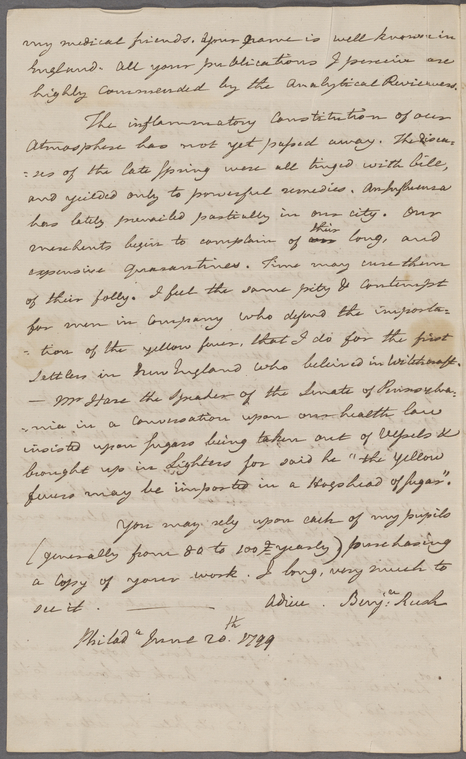 my medical friends. Your name is well known in
England. All your publications I perceive are
highly commended by the Analytical Reviewers.
The inflammatory constitution of our
Atmosphere has not yet passed away. The disea-
=ses of the late Spring were all tinged with bile,
and yeilded only to powerful remedies. An Influenza
has lately prevailed partially in our city. Our
merchents begin to complain of our their long, and
expensive Quarantines. Time may cure them
of their folly. I feel the same pity & contempt
for men in company who defend the importa-
-tion of the yellow fever, that I do for the first
Settlers in New England who beleived in Witchcraft.
— Mr Hare the Speaker of the Senate of Pennsylva-
-nia in a conversation upon our health law
insisted upon Sugars being taken out of Vessels &
brought up in Lighters for said he "the Yellow
fevers may be imported in a Hogshead of Sugar".
You may rely upon each of my pupils
(generally from 80 to 100 yearly) purchasing
a copy of your work. I long, very much to
see it. — Adieu. Benjn Rush
Philada June 20th. 1799